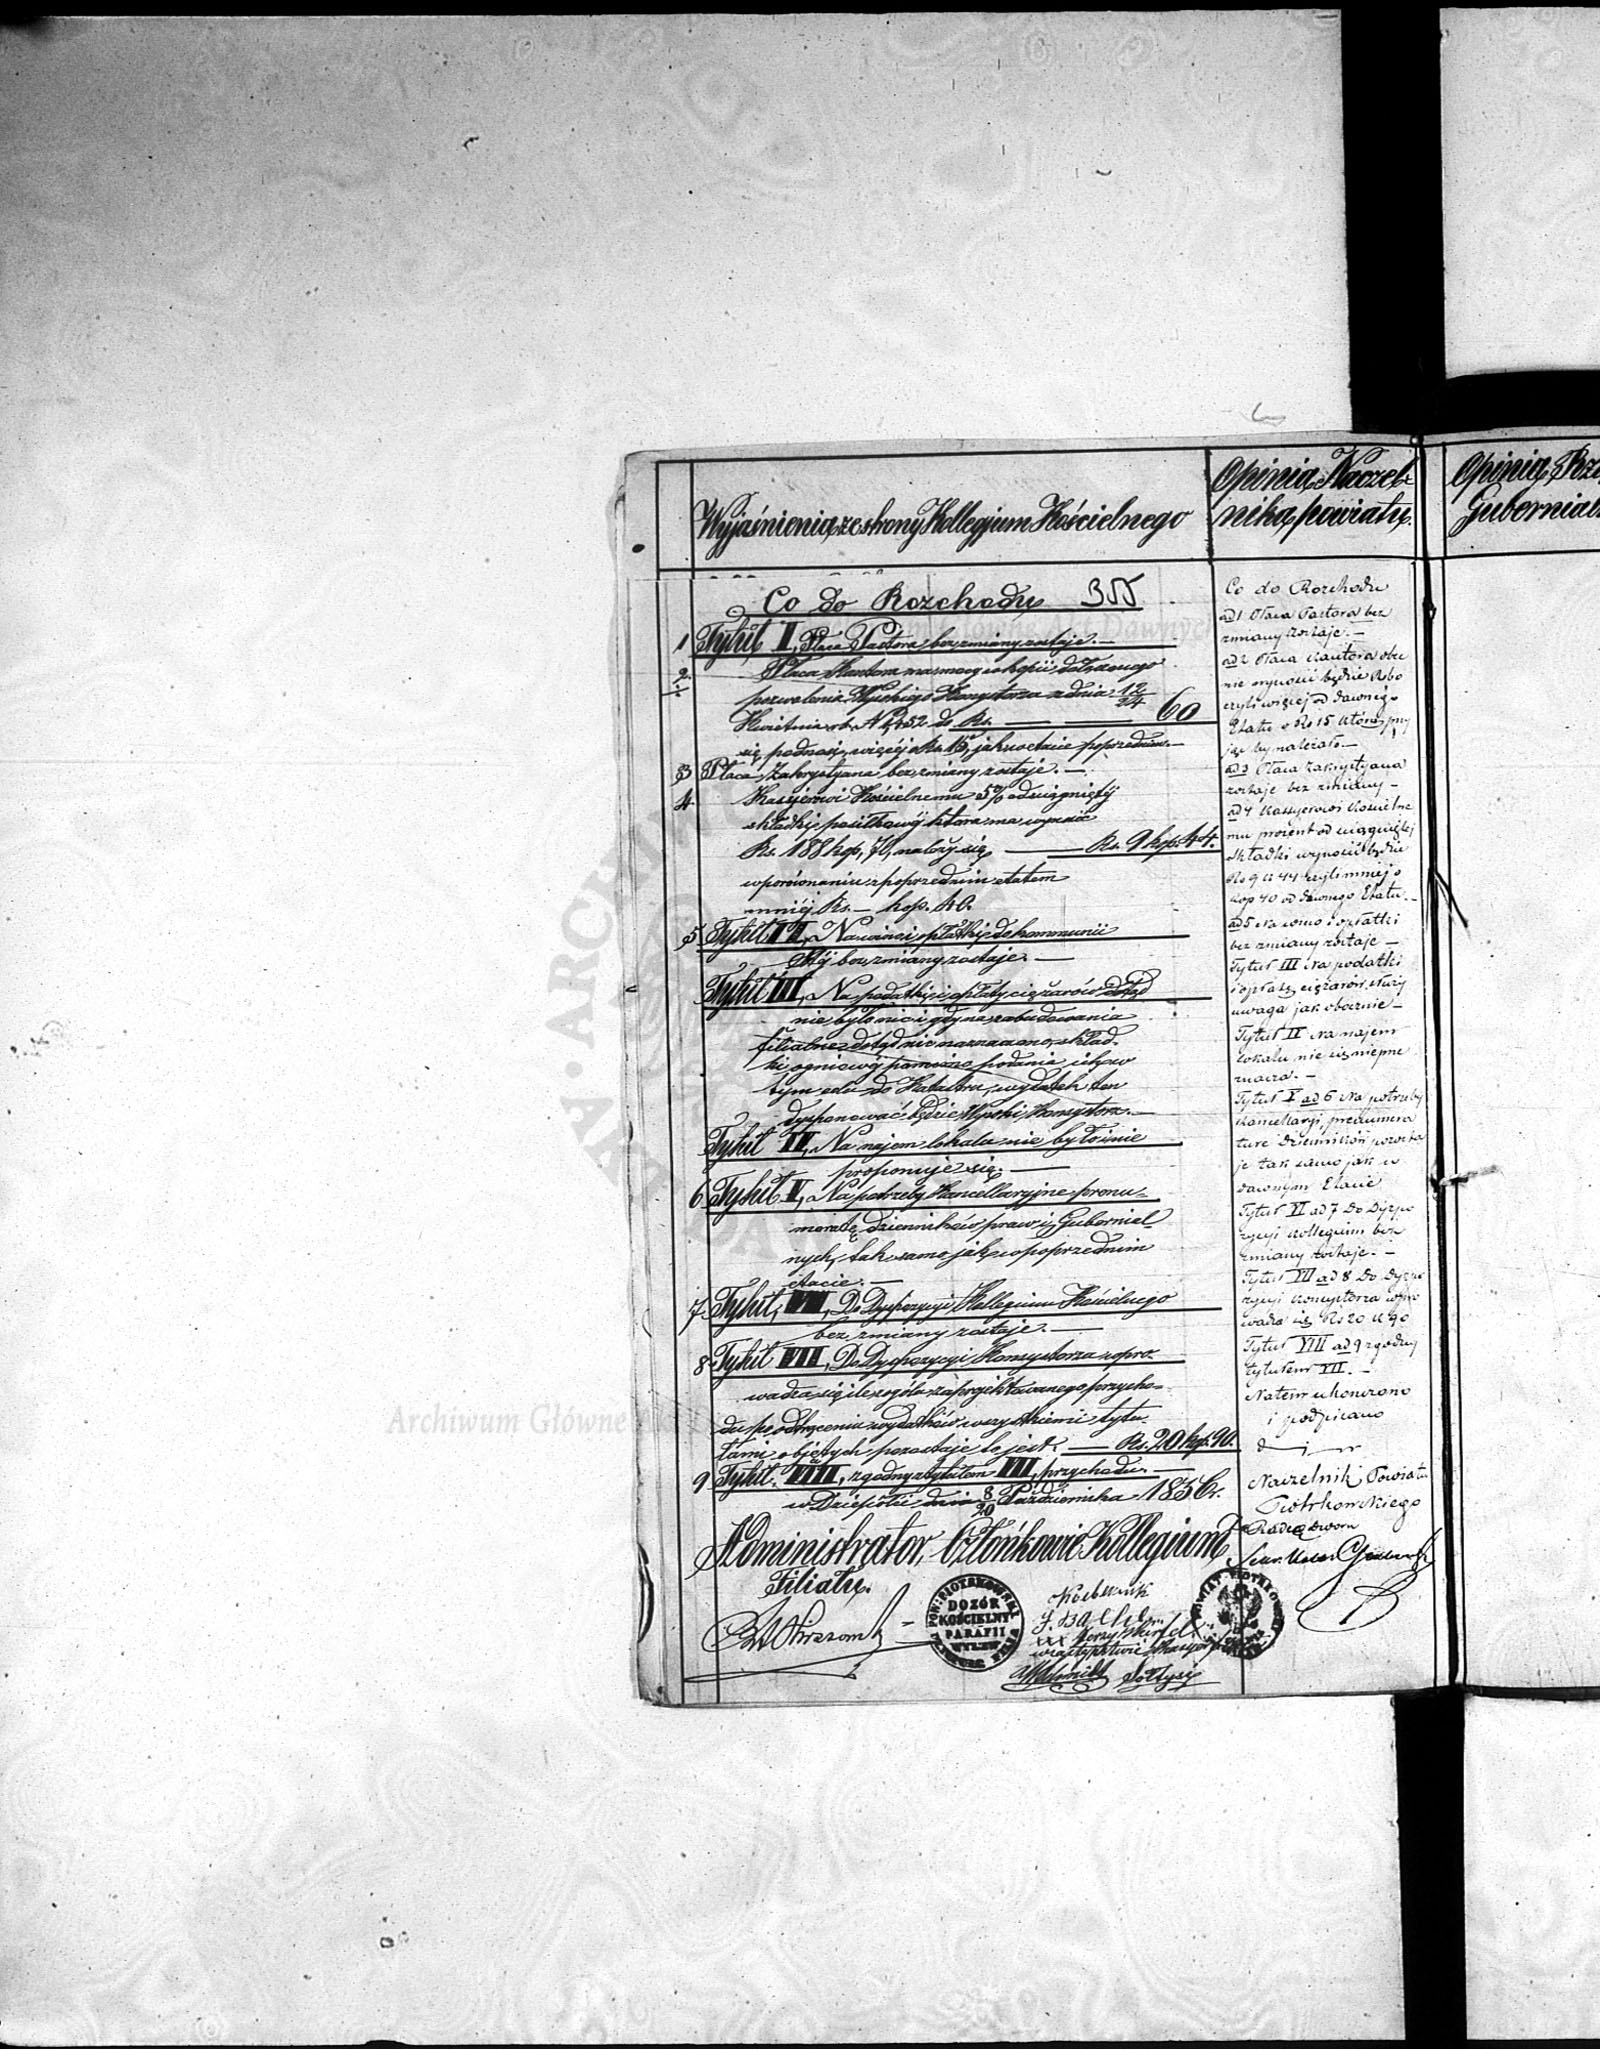 Wyjaśnienia ze strony Kollegjum Kościelnego
Co do Rozchodu 355
1 Tytuł I, Płaca Pastora bez zmiany zostaje. —
2. Płaca Kantora na mocy w kopii dołączonego
pozwolenia Wysokiego Konsystorza z dnia 12/24
Kwietnia r.b. N do Rs. — 60
się podnosi, więcéj o Rs. 15, jak w etacie poprzednim. —
3 Płaca Zakrystyana bez zmiany zostaje. —
4. Kassyerowi Kościelnemu 5% od ściągniętéj
składki posiłkowéj która ma wynosić
Rs. 188 kop. 70, należy się — Rs. 9 kop. 44.
w porównaniu z poprzednim etatem
mniéj Rs. — kop. 40.
5. Tytuł II, Na wino i opłatki do kommunii
Stéj bez zmiany zostaje. —
Tytuł III, Na podatki i opłaty ciężarów dotąd
nie było nic i gdy na zabudowania
filialne dotąd nie naznaczono skład-
ki ogniowéj pomimo podania ich w
tym celu do Katastru, wydatek ten
dysponować będzie Wysoki Konsystorz. —
Tytuł IV, Na najem lokalu nie było i nie
proponuje się. —
6 Tytuł V, Na potrzeby Kancellaryjne prenu-
meratę dzienników praw i Gubernial-
nych, tak samo jak w poprzednim
etacie. —
7. Tytuł, VI, Do Dyspozycyi Kollegium Kościelnego
bez zmiany zostaje. —
8 Tytuł VII, Do Dyspozycyi Konsystorza wpro-
wadza się ile z ogółu zaprojektowanego przycho-
du po odtrąceniu wydatków wszystkiemi tytu-
łami objętych pozostaje to jest. — Rs. 20 kop. 90.
9 Tytuł. VIII, zgodny z tytułem VII, przychodu. —
w Dziepółci dnia 8/20 Października 1856 r.
Administrator Członkowie Kollegium
Filiału.
POW: PIOTRKOWSKI
DOZÓR
KOŚCIELNY
PARAFII
Koch
J. Ba
xxx Jerzy
w zastępstwie
Schmidt Sołtys
Opinia Naczel-
nika powiatu.
Co do Rozchodu
ad 1 Płaca Pastora bez
zmiany zostaje. —
ad 2 Płaca Kantora obe
nie wynosić będzie Rs 60
czyli więcej od dawnego
Etatu o Rs 15 które przy
jąć by należało. —
ad 3 Płaca Zakrystyana
zostaje bez zmiany —
ad 4 Kassyerowi Kościelne
mu procent od ściągniętej
składki wynosić będzie
Rs 9 k 44 czyli mniej o
kop 40 od dawnego Etatu. —
ad 5 Na wino i opłatki
bez zmiany zostaje —
Tytuł III Na podatki
i opłatę ciężarów, służy
uwaga jak obocznie —
Tytuł IV Na najem
lokalu nic się nieprze
znacza. —
Tytuł V ad 6 Na potrzeby
Kancellaryi prenumera
turę dzienników pozosta
je tak samo jak w
dawnym Etacie
Tytuł VI ad 7 Do Dyspo
zycyi Kollegium bez
zmiany zostaje. —
Tytuł VII ad 8 Do Dyspo
zycyi Konsystorza wpro
wadza się Rs 20 k 90
Tytuł VIII ad 9 zgodny
z tytułem VII. —
Na tem ukończono
i podpisano
Naczelnik Powiatu
Piotrkowskiego
Radca Dworu
POWIAT PIOTRKOWSKI
Opinia Rzą
Gubernial
ARCHIWUM
Archiwum Główne Akt Dawnych